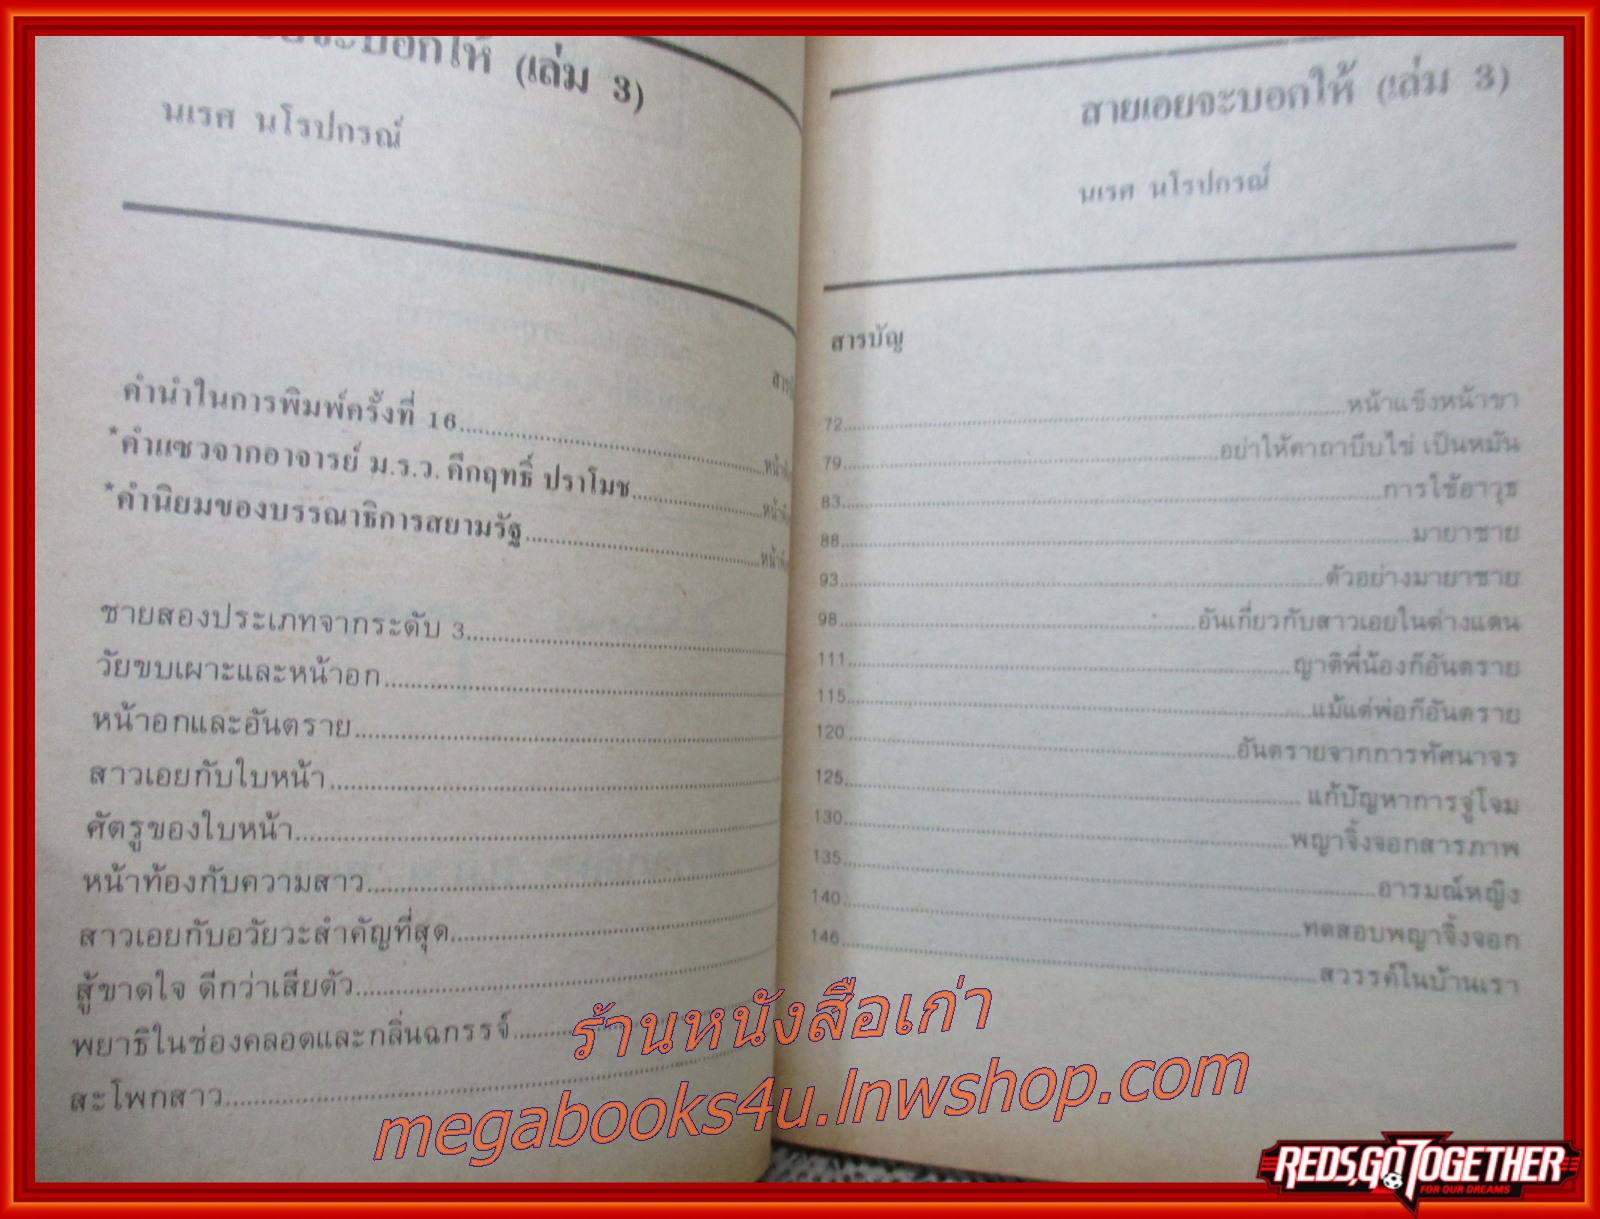 จะบอกให้ (เล่ม 3)
นเรศ นโรปกรณ์
คำนำในการพิมพ์ครั้งที่ 16
*คำแซวจากอาจารย์ ม.ร.ว. คึกฤทธิ์ ปราโมช
*คำนิยมของบรรณาธิการสยามรัฐ
ชายสองประเภทจากระดับ 3
วัยขบเผาะและหน้าอก
หน้าอกและอันตราย
สาวเอยกับใบหน้า
ศัตรูของใบหน้า
หน้าท้องกับความสาว
สาวเอยกับอวัยวะสำคัญที่สุด
สู้ขาดใจ ดีกว่าเสียตัว
พยาธิในช่องคลอดและกลิ่นฉกรรจ์
สะโพกสาว
สายเอยจะบอกให้ (เล่ม 3)
นเรศ นโรปกรณ์
สารบัญ
72 หน้าแข้งหน้าขา
79 อย่าให้คาถาบีบไข่ เป็นหมัน
83 การใช้อาวุธ
88 มายาชาย
93 ตัวอย่างมายาชาย
98 อันเกี่ยวกับสาวเอยในต่างแดน
111 ญาติพี่น้องก็อันตราย
115 แม้แต่พ่อก็อันตราย
120 อันตรายจากการทัศนาจร
125 แก้ปัญหาการจู่โจม
130 พญาจิ้งจอกสารภาพ
135 อารมณ์หญิง
140 ทดสอบพญาจิ้งจอก
146 สวรรค์ในบ้านเรา
ร้านหนังสือเก่า
megabooks4u.lnwshop.com
REDS,GO TOGETHER
FOR OUR DREAMS